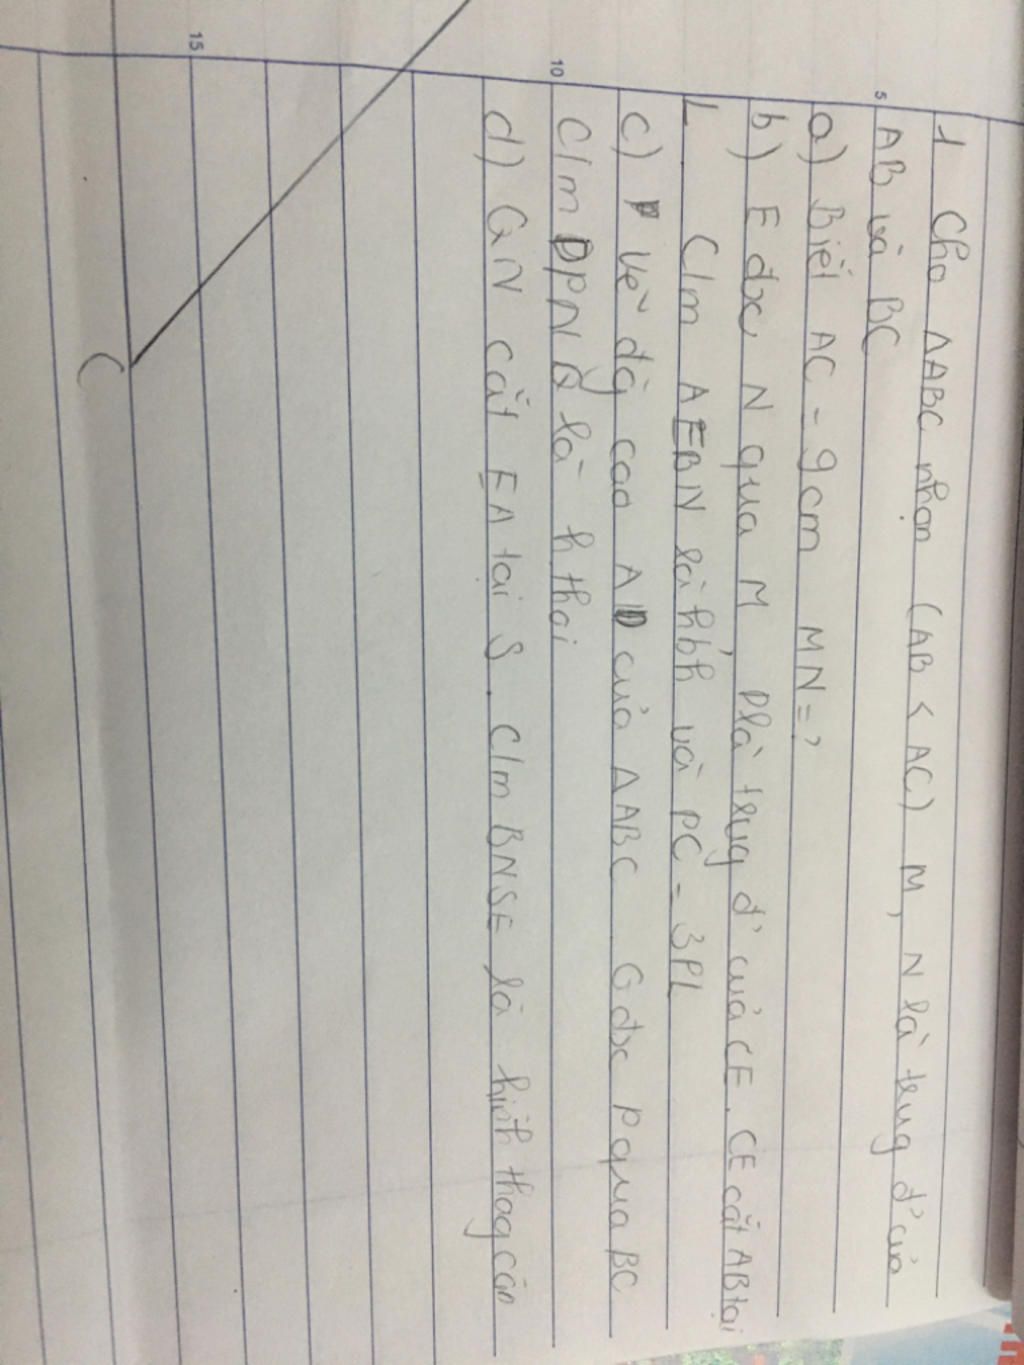 1 Cho ΔABC nhọn (AB < AC) M, N là trug đ' của
AB và BC
a) Biết AC = 9cm MN = ?
b) E đx N qua M P là trug đ' của CE. CE cắt AB tại
L C/m AEBN là hbh và PC = 3PL
c) Vẽ đg cao AD của ΔABC Q đx P qua BC
C/m DPNQ là h thoi
d) QN cắt EA tại S. C/m BNSE là hình thag cân
C
5
10
15